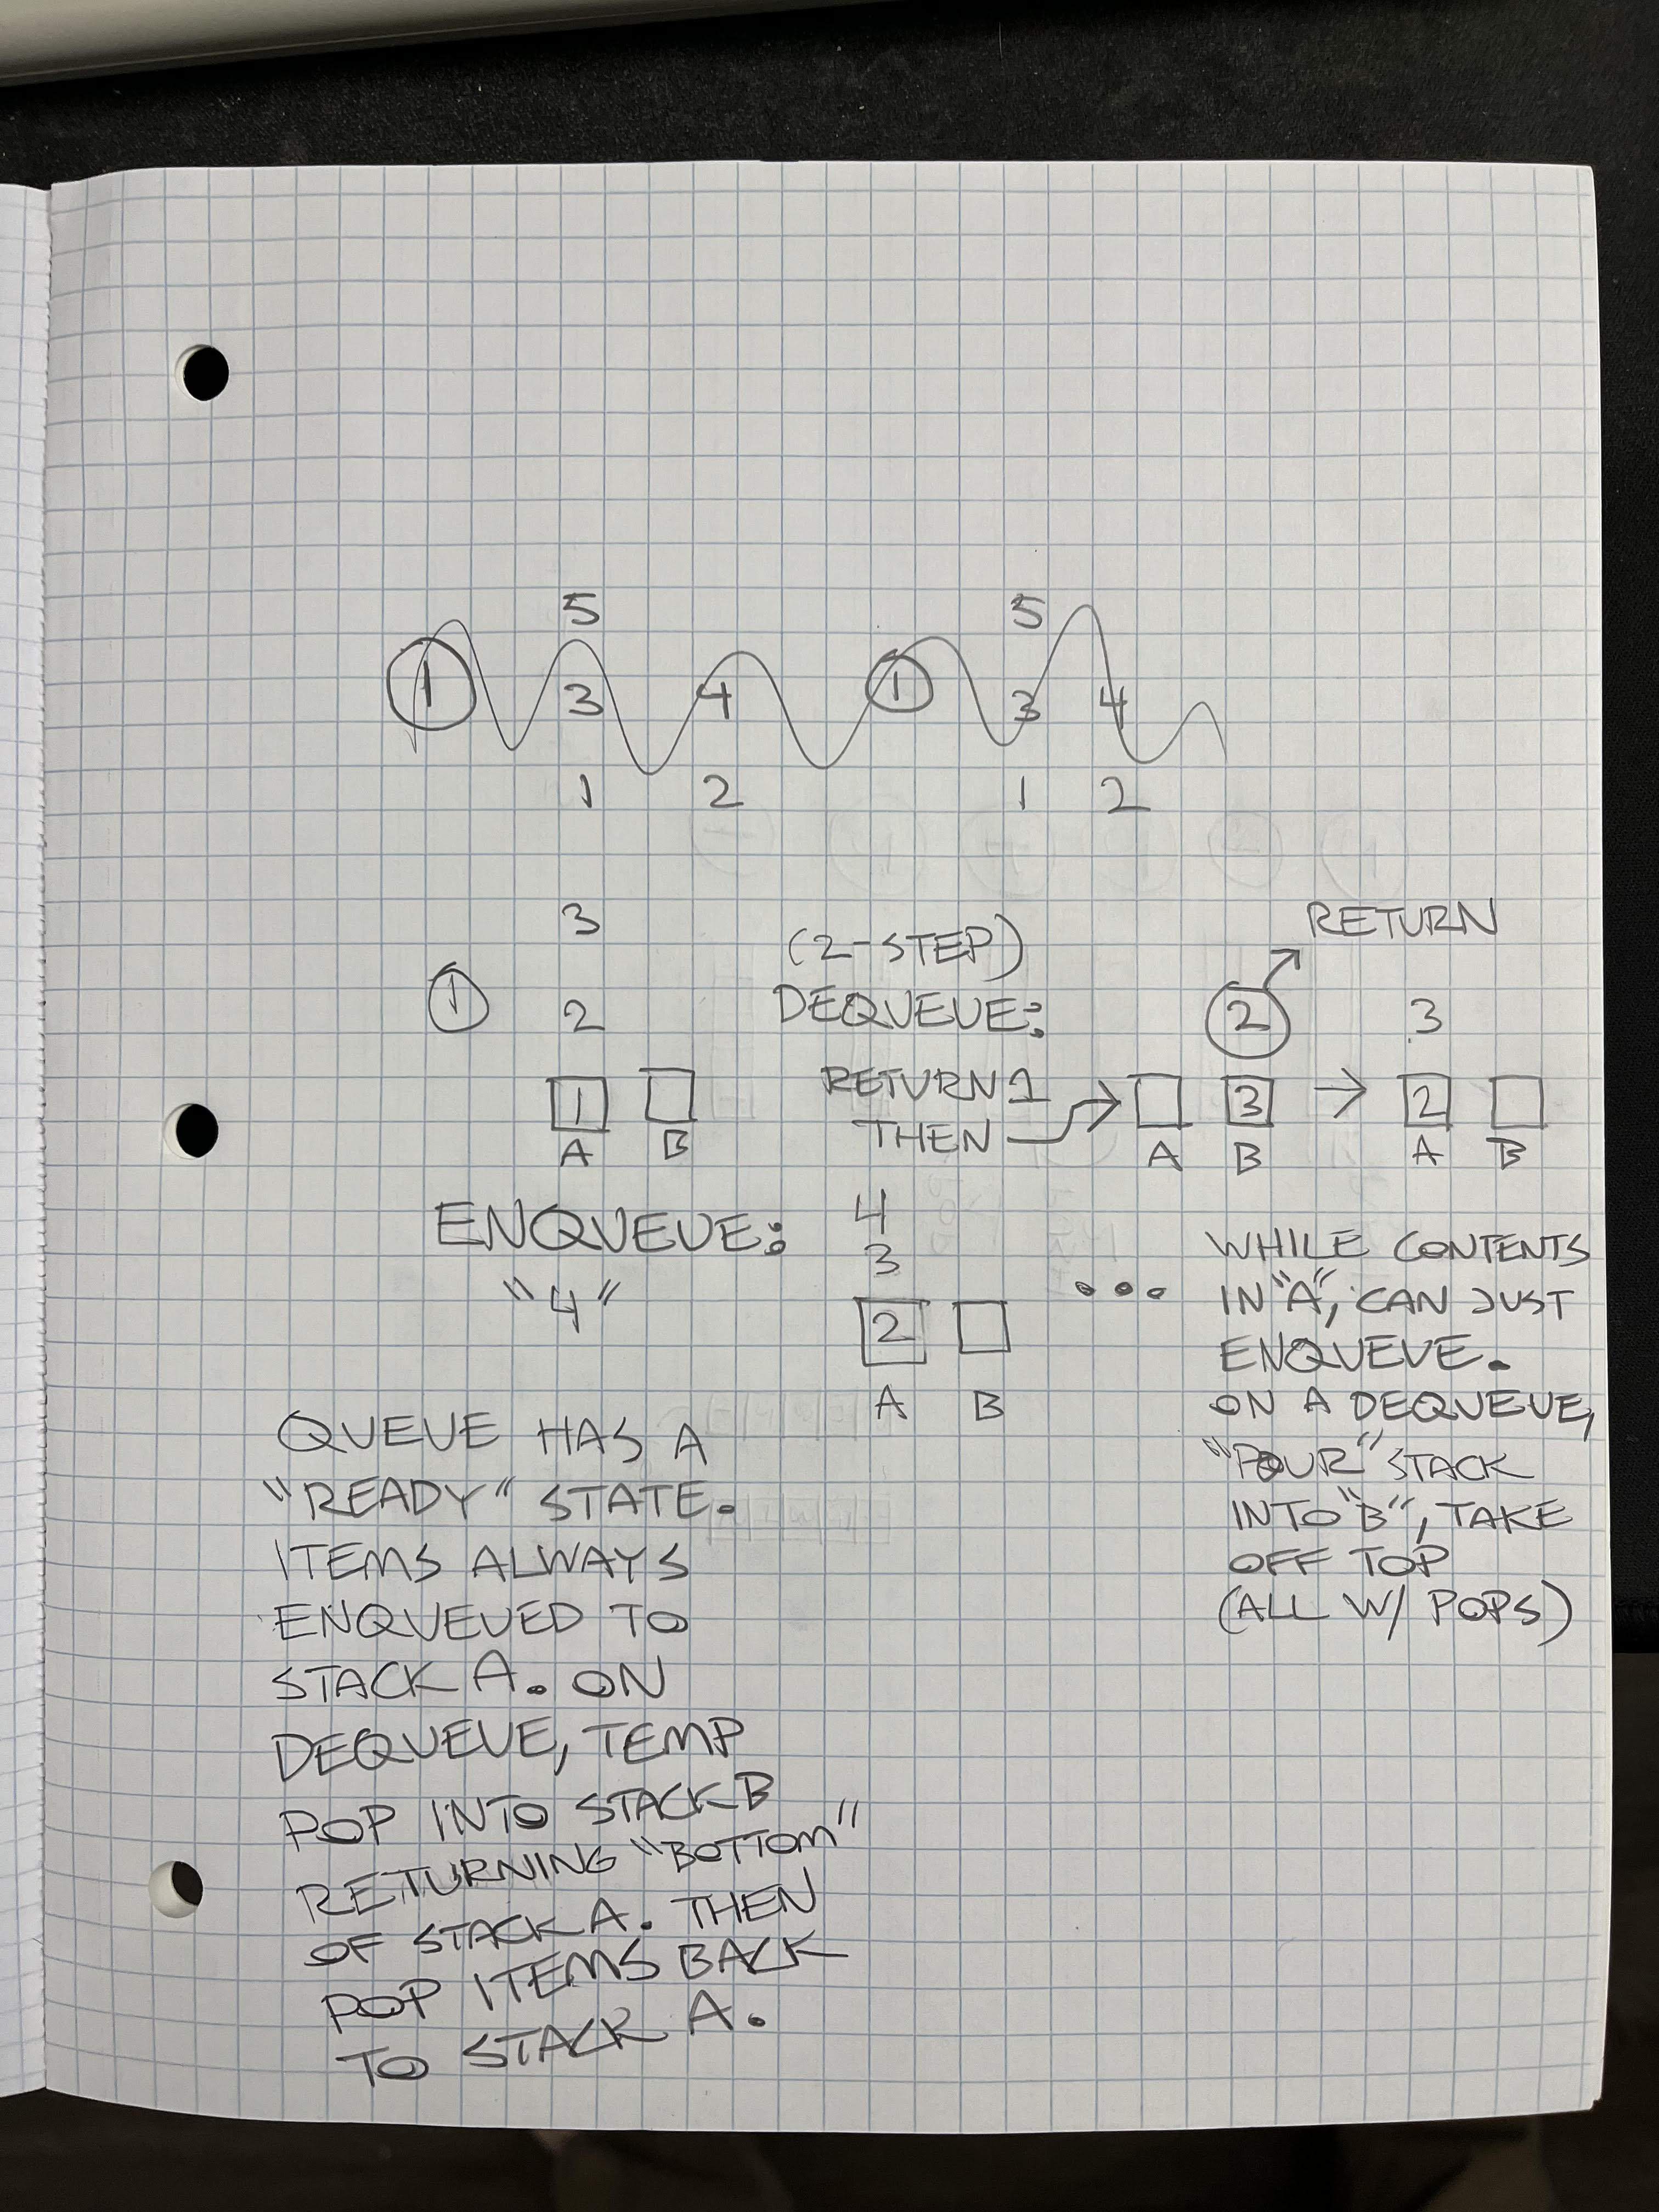 5 5
1 3 4 1 3 4
1 2 1 2
3 (2-STEP) RETURN
1 2 DEQUEUE: 2 3
1 RETURN 1 3 → 2
A B THEN A B A B
ENQUEUE:
"4"
4
3
2
A B
...
WHILE CONTENTS
IN "A", CAN JUST
ENQUEUE.
ON A DEQUEUE,
"POUR" STACK
INTO "B", TAKE
OFF TOP
(ALL W/ POPS)
QUEUE HAS A
"READY" STATE.
ITEMS ALWAYS
ENQUEUED TO
STACK A. ON
DEQUEUE, TEMP
POP INTO STACK B
RETURNING "BOTTOM"
OF STACK A. THEN
POP ITEMS BACK
TO STACK A.